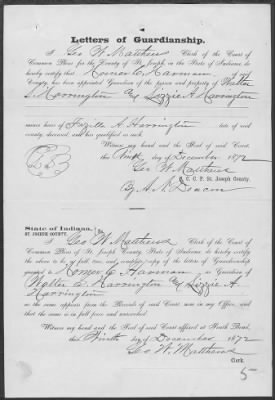 Letters of Guardianship.
I, Geo W. Matthews Clerk of the Court of
Common Pleas for the County of St. Joseph, in the State of Indiana, do
hereby certify that Homer C. Harman
County, has been appointed Guardian of the person and property of Walter
Harrington & Lizzie A. Harrington
minor heirs of A. Harrington late of said
county, deceased and has qualified as such.
Witness my hand and the Seal of said court,
this Ninth day of December 1872
Geo W. Matthews
C. C. P. St. Joseph County.
By A. N. Deacon
State of Indiana,
ST. JOSEPH COUNTY.
I, Geo W. Matthews Clerk of the Court of
Common Pleas of St. Joseph County, State of Indiana, do hereby certify
the above to be a full, true, and complete copy of the letters of Guardianship
granted to Homer C. Harman as Guardian of
Walter Harrington & Lizzie A
Harrington
as the same appears from the Records of said Court now in my Office, and
that the same is in full force and unrevoked.
Witness my hand and the Seal of said Court affixed at South Bend,
this Ninth day of December 1872
Geo W. Matthews
Clerk.
5